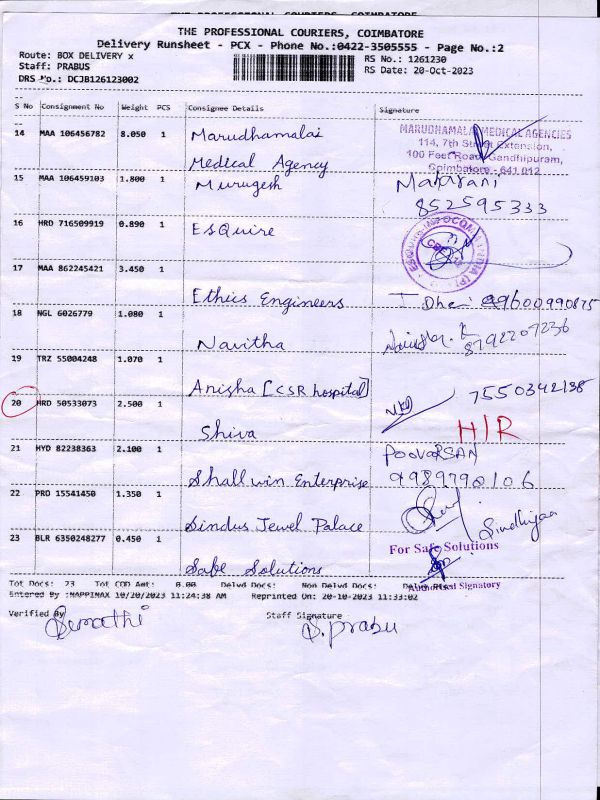 THE PROFESSIONAL COURIERS, COIMBATORE
THE PROFESSIONAL COURIERS, COIMBATORE
Delivery Runsheet - PCX - Phone No.:0422-3505555 - Page No.:2
Route: BOX DELIVERY x
RS No.: 1261230
Staff: PRABUS
RS Date: 20-Oct-2023
DRS No.: DCJB126123002
S No Consignment No Weight PCS Consignee Details Signature
14 MAA 106456782 8.050 1 Marudhamalai
Medical Agency
MARUDHAMALAI MEDICAL AGENCIES
114, 7th Street Extension,
100 Feet Road, Gandhipuram,
Coimbatore - 641 012
15 MAA 106459103 1.800 1 Murugesh
852595333
16 HRD 716509919 0.890 1 EsQuire
17 MAA 862245421 3.450 1
Ethics Engineers
9600990875
18 NGL 6026779 1.080 1
Navitha
8792207236
19 TRZ 55004248 1.070 1
Anisha [CSR hospital]
7550342138
20 HRD 50533073 2.500 1
Shiva
H/R
21 HYD 82238363 2.100 1
POOVARSAN
Shallwin Enterprise
9989790106
22 PRO 15541450 1.350 1
Sindus Jewel Palace
Sindhujaa
23 BLR 6350248277 0.450 1
Safe Solutions
For Safe Solutions
Authorised Signatory
Tot Docs: 23 Tot COD Amt: 0.00 Delvd Docs: Non Delvd Docs:
Entered By :MAPPIMAX 10/20/2023 11:24:38 AM Reprinted On: 20-10-2023 11:33:02
Verified By
Staff Signature
S. prabu